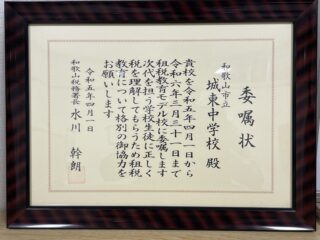 委嘱状
和歌山市立
城東中学校 殿
貴校を令和五年四月一日から
令和六年三月三十一日まで
租税教育モデル校に委嘱します
次代を担う学校生徒に正しく
税を理解してもらうため租税
教育について格別の御協力を
お願いします
令和五年四月一日
和歌山税務署長 水川 幹朗